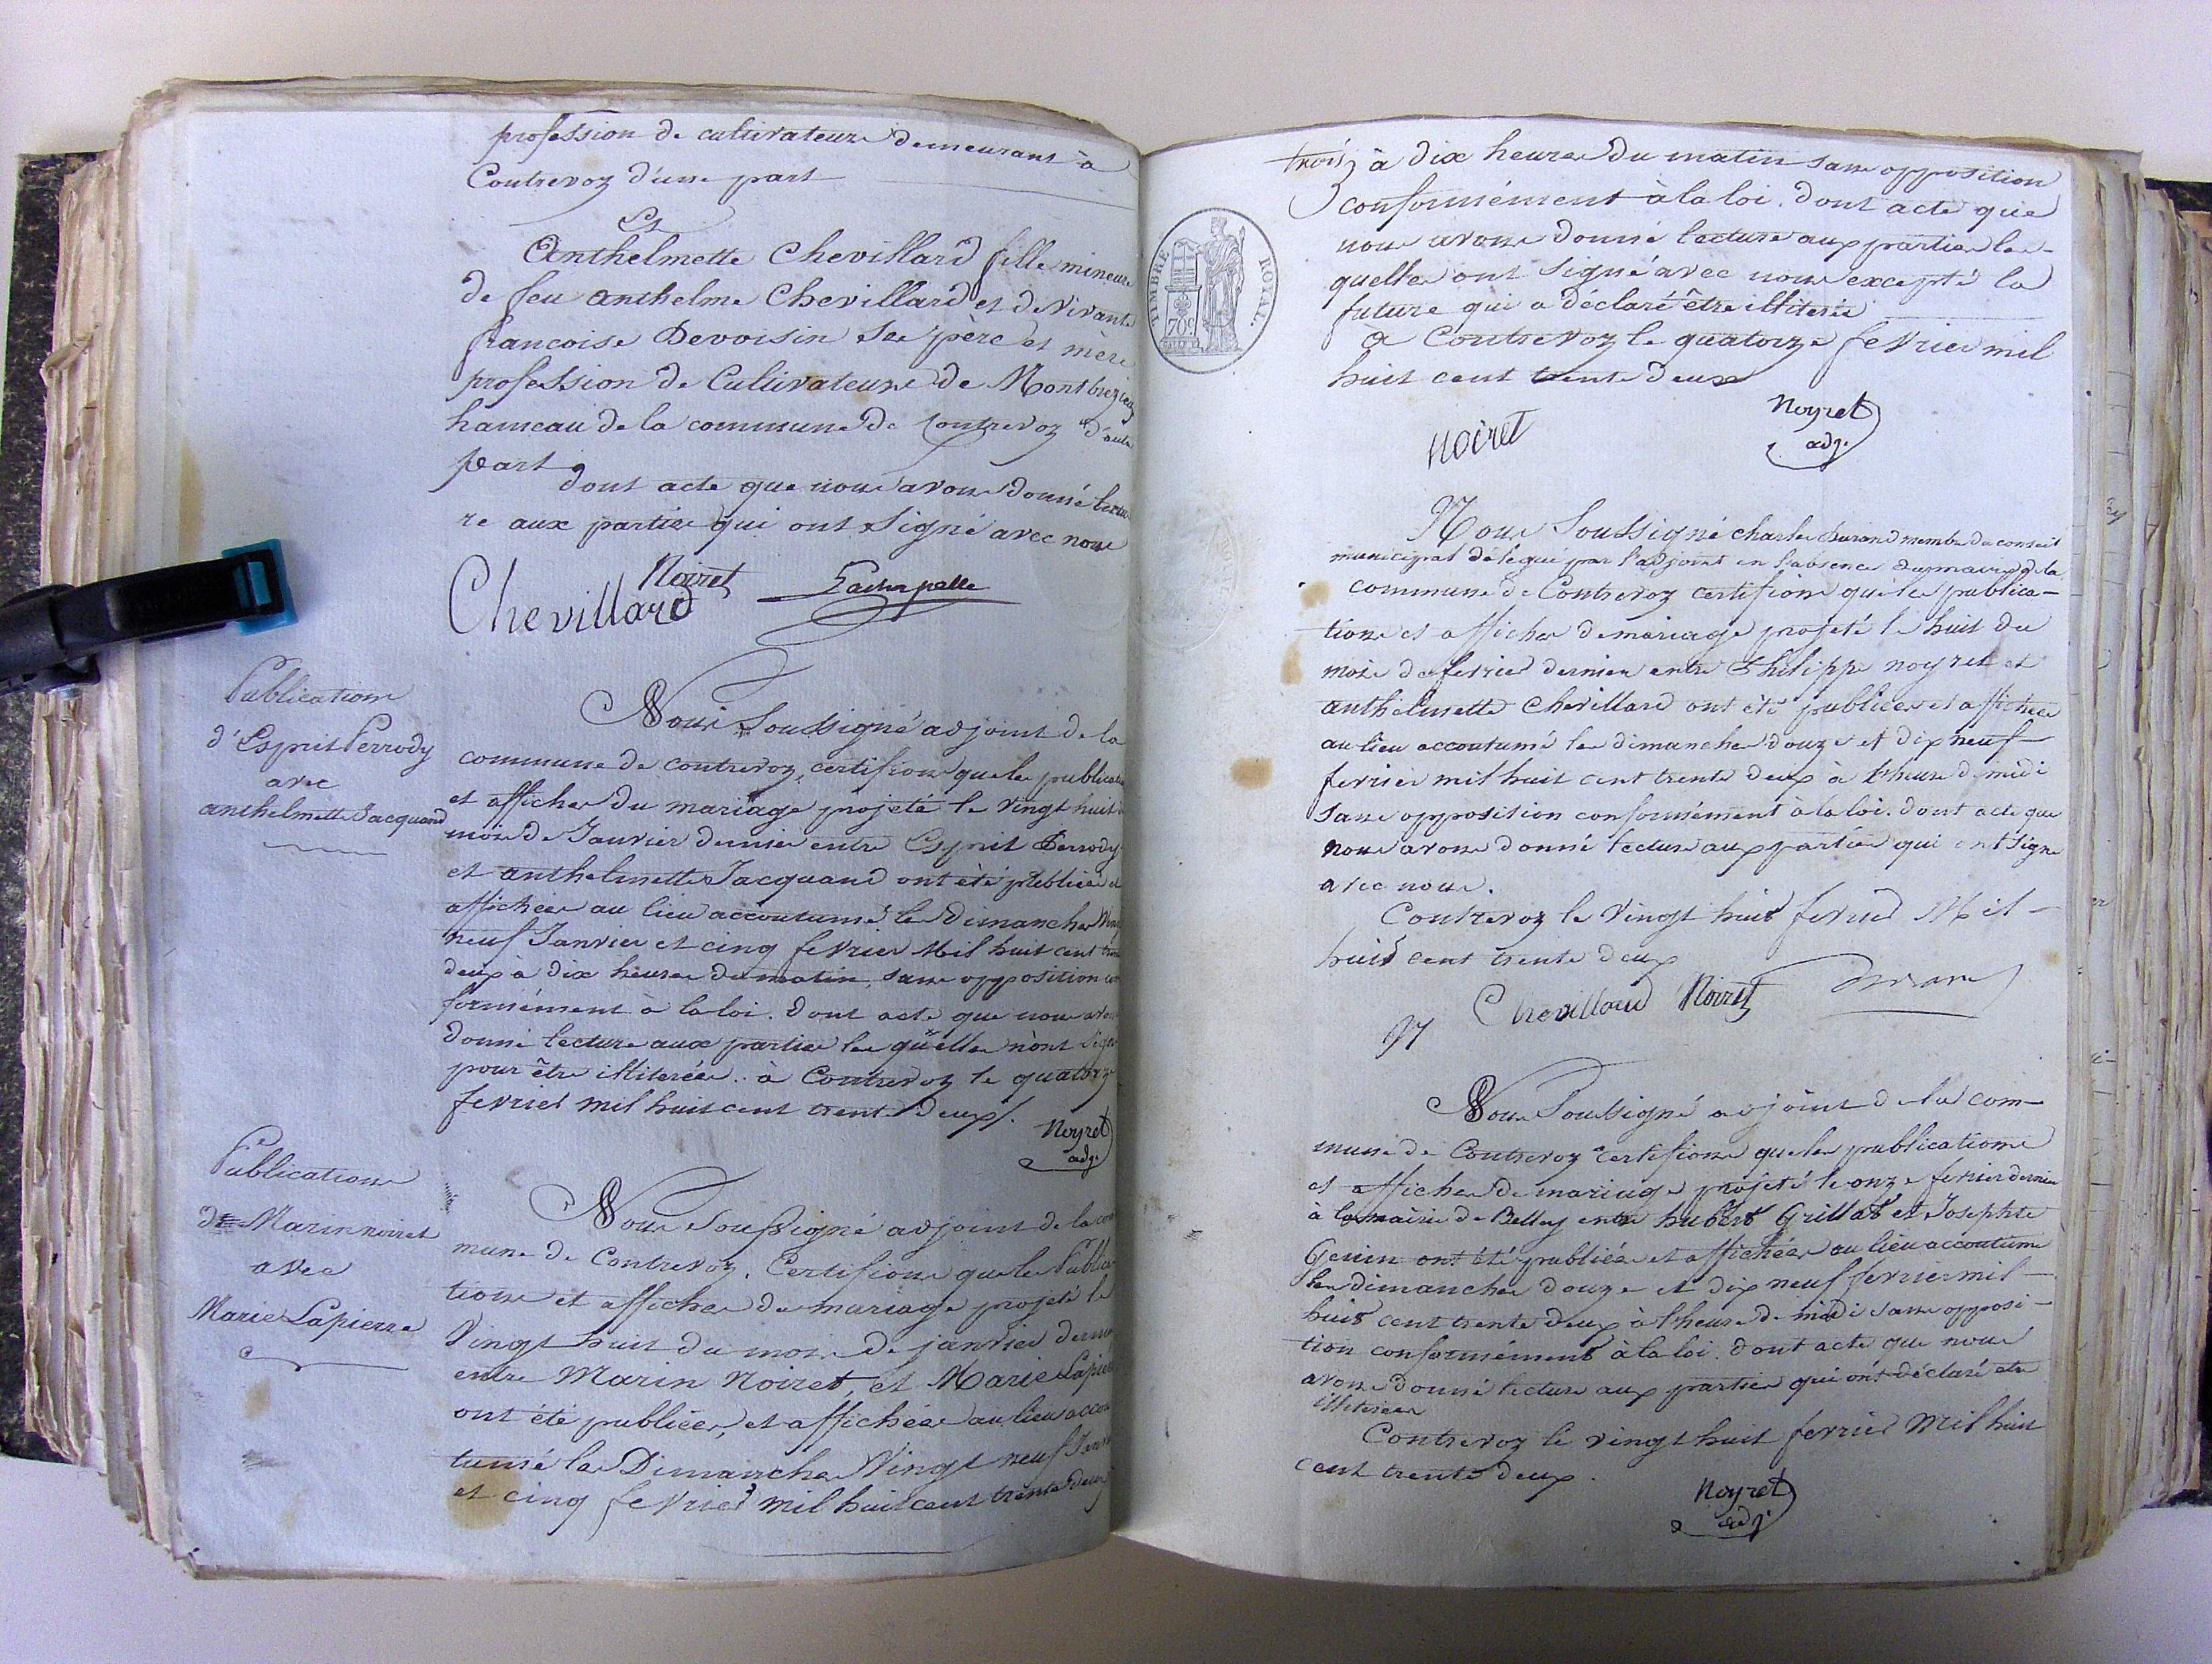 profession de cultivateurs demeurant à
Contrevoz d'une part
Et
Anthelmette Chevillard fille mineure
de feu anthelme Chevillard et de vivante
francoise Devoisin ses père et mère
profession de Cultivateurs de Montbrezieu
hameau de la commune de Contrevoz d'autre
part
dont acte que nous avons donné lectu
re aux parties qui ont signé avec nous
Noiret
Chevillard
Publications
d'Esprit Perrody
avec
anthelmette Jacquand
Nous Soussigné adjoint de la
commune de contrevoz, certifions que les publication
et affiches du mariage projeté le vingt huit du
mois de Janvier dernier entre Esprit Perrody
et anthelmette Jacquand ont été publiées et
affichées au lieu accoutumé les dimanches Vingt
neuf Janvier et cinq fevrier Mil huit cent trente
deux à dix heures du matin, sans opposition con
formément à la loi. dont acte que nous avons
donné lecture aux parties les quelles n'ont signé
pour être illiterées.. à Contrevoz le quatorze
fevrier mil huit cent trente deux/.
Noyret
adj.
Publications
de Marin noiret
avec
Marie Lapierre
Nous Soussigné adjoint de la com
mune de Contrevoz. Certifions que les Publica
tions et affiches du mariage projeté le
Vingt huit du mois de janvier dernier
entre Marin Noiret, et Marie Lapierre
ont été publiées, et affichées au lieu accou
tumé les Dimanches Vingt neuf Janvier
et cinq fevrier mil huit cent trente deux
TIMBRE ROYAL.
70c
à dix heures du matin sans opposition
conformément à la loi. dont acte que
nous avons donné lecture aux parties les-
quelles ont signé avec nous excepté la
future qui a déclaré être illiterée
à Contrevoz le quatorze fevrier mil
huit cent trente deux
Noyret
adj.
noiret
Nous Soussigné charles Durand membre du conseil
municipal délégué par l'adjoint en l'absence du maire de la
commune de Contrevoz certifions que les publica-
tions et affiches de mariage projeté le huit du
mois de fevrier dernier entre Philippe noyret et
anthelmette Chevillard ont été publiées et affichées
au lieu accoutumé les dimanches douze et dix neuf
fevrier mil huit cent trente deux à l'heure de midi
sans opposition conformément à la loi. dont acte que
nous avons donné lecture aux parties qui ont signé
avec nous.
Contrevoz le vingt huit fevrier Mil-
huit cent trente deux
Chevillard Noiret Durand
Nous Soussigné adjoint de la com-
mune de Contrevoz certifions que les publications
et affiches de mariage projeté le onze fevrier dernier
à la mairie de Belley entre hubert Grillat et Josephte
Genin ont été publiées et affichées au lieu accoutumé
les dimanches douze et dix neuf fevrier mil-
huit cent trente deux à l'heure de midi sans opposi-
tion conformément à la loi. dont acte que nous
avons donné lecture aux parties qui ont déclaré etre
illiterées
Contrevoz le vingt huit fevrier Mil huit
cent trente deux.
Noyret
adj.